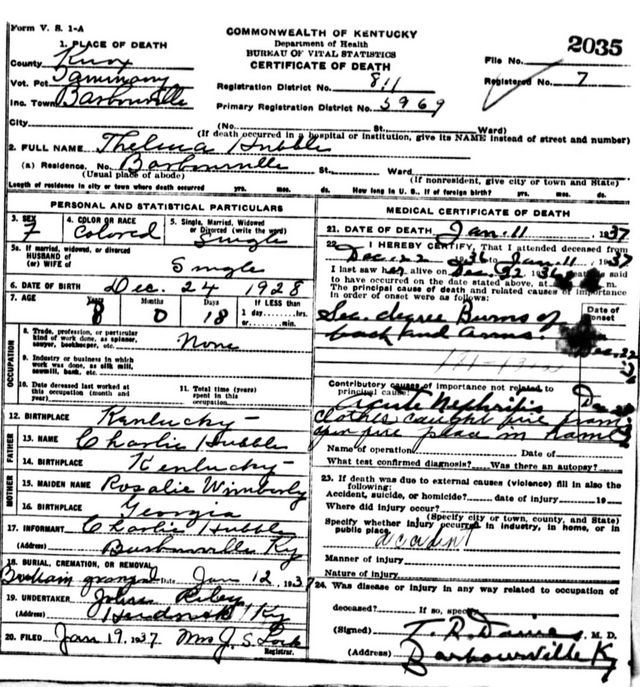 Form V. S. 1-A
COMMONWEALTH OF KENTUCKY
Department of Health
BUREAU OF VITAL STATISTICS
CERTIFICATE OF DEATH
2035
File No.
Registered No. 7
1. PLACE OF DEATH
County Knox
Vot. Pct Tammany
Inc. Town Barbourville
City
Registration District No. 811
Primary Registration District No. 5969
(No. St. Ward)
(If death occurred in a hospital or institution, give its NAME instead of street and number)
2. FULL NAME Thelma Hubble
(a) Residence, No. Barbourville St., Ward
(Usual place of abode) (If nonresident, give city or town and State)
Length of residence in city or town where death occurred yrs. mos. ds. How long in U. S., if of foreign birth? yrs. mos. ds.
PERSONAL AND STATISTICAL PARTICULARS
3. SEX F
4. COLOR OR RACE Colored
5. Single, Married, Widowed or Divorced (write the word) Single
5a. If married, widowed, or divorced
HUSBAND of
(or) WIFE of Single
6. DATE OF BIRTH Dec. 24 1928
7. AGE Years 8 Months 0 Days 18 If LESS than
1 day hrs.
or min.
OCCUPATION
8. Trade, profession, or particular
kind of work done, as spinner,
sawyer, bookkeeper, etc. None
9. Industry or business in which
work was done, as silk mill,
sawmill, bank, etc.
10. Date deceased last worked at
this occupation (month and
year)
11. Total time (years)
spent in this
occupation
12. BIRTHPLACE Kentucky
FATHER
13. NAME Charlie Hubble
14. BIRTHPLACE Kentucky
MOTHER
15. MAIDEN NAME Rosalie Wimberly
16. BIRTHPLACE Georgia
17. INFORMANT Charlie Hubble
(Address) Barbourville Ky
18. BURIAL, CREMATION, OR REMOVAL
Date Jan 12, 1937
19. UNDERTAKER Riley
(Address) Ky
20. FILED Jan 19, 1937 Mrs J. S.
Registrar.
MEDICAL CERTIFICATE OF DEATH
21. DATE OF DEATH Jan. 11 1937
22. I HEREBY CERTIFY, That I attended deceased from
Dec. 22 36 to Jan. 11, 1937
I last saw her alive on Dec. 1936 said
to have occurred on the date stated above, at m.
The principal cause of death and related causes of importance
in order of onset were as follows:
Date of
onset
Sec. degree Burns of
back and arms. Dec. 22
Contributory causes of importance not related to
principal cause:
acute Nephritis Dec
clothes caught fire from
open fire place in home
Name of operation Date of
What test confirmed diagnosis? Was there an autopsy?
23. If death was due to external causes (violence) fill in also the
following:
Accident, suicide, or homicide? date of injury 19
Where did injury occur?
(Specify city or town, county, and State)
Specify whether injury occurred in industry, in home, or in
public place.
Manner of injury
Nature of injury
24. Was disease or injury in any way related to occupation of
deceased? If so, specify
(Signed) T. R. Davies M. D.
(Address) Barbourville Ky